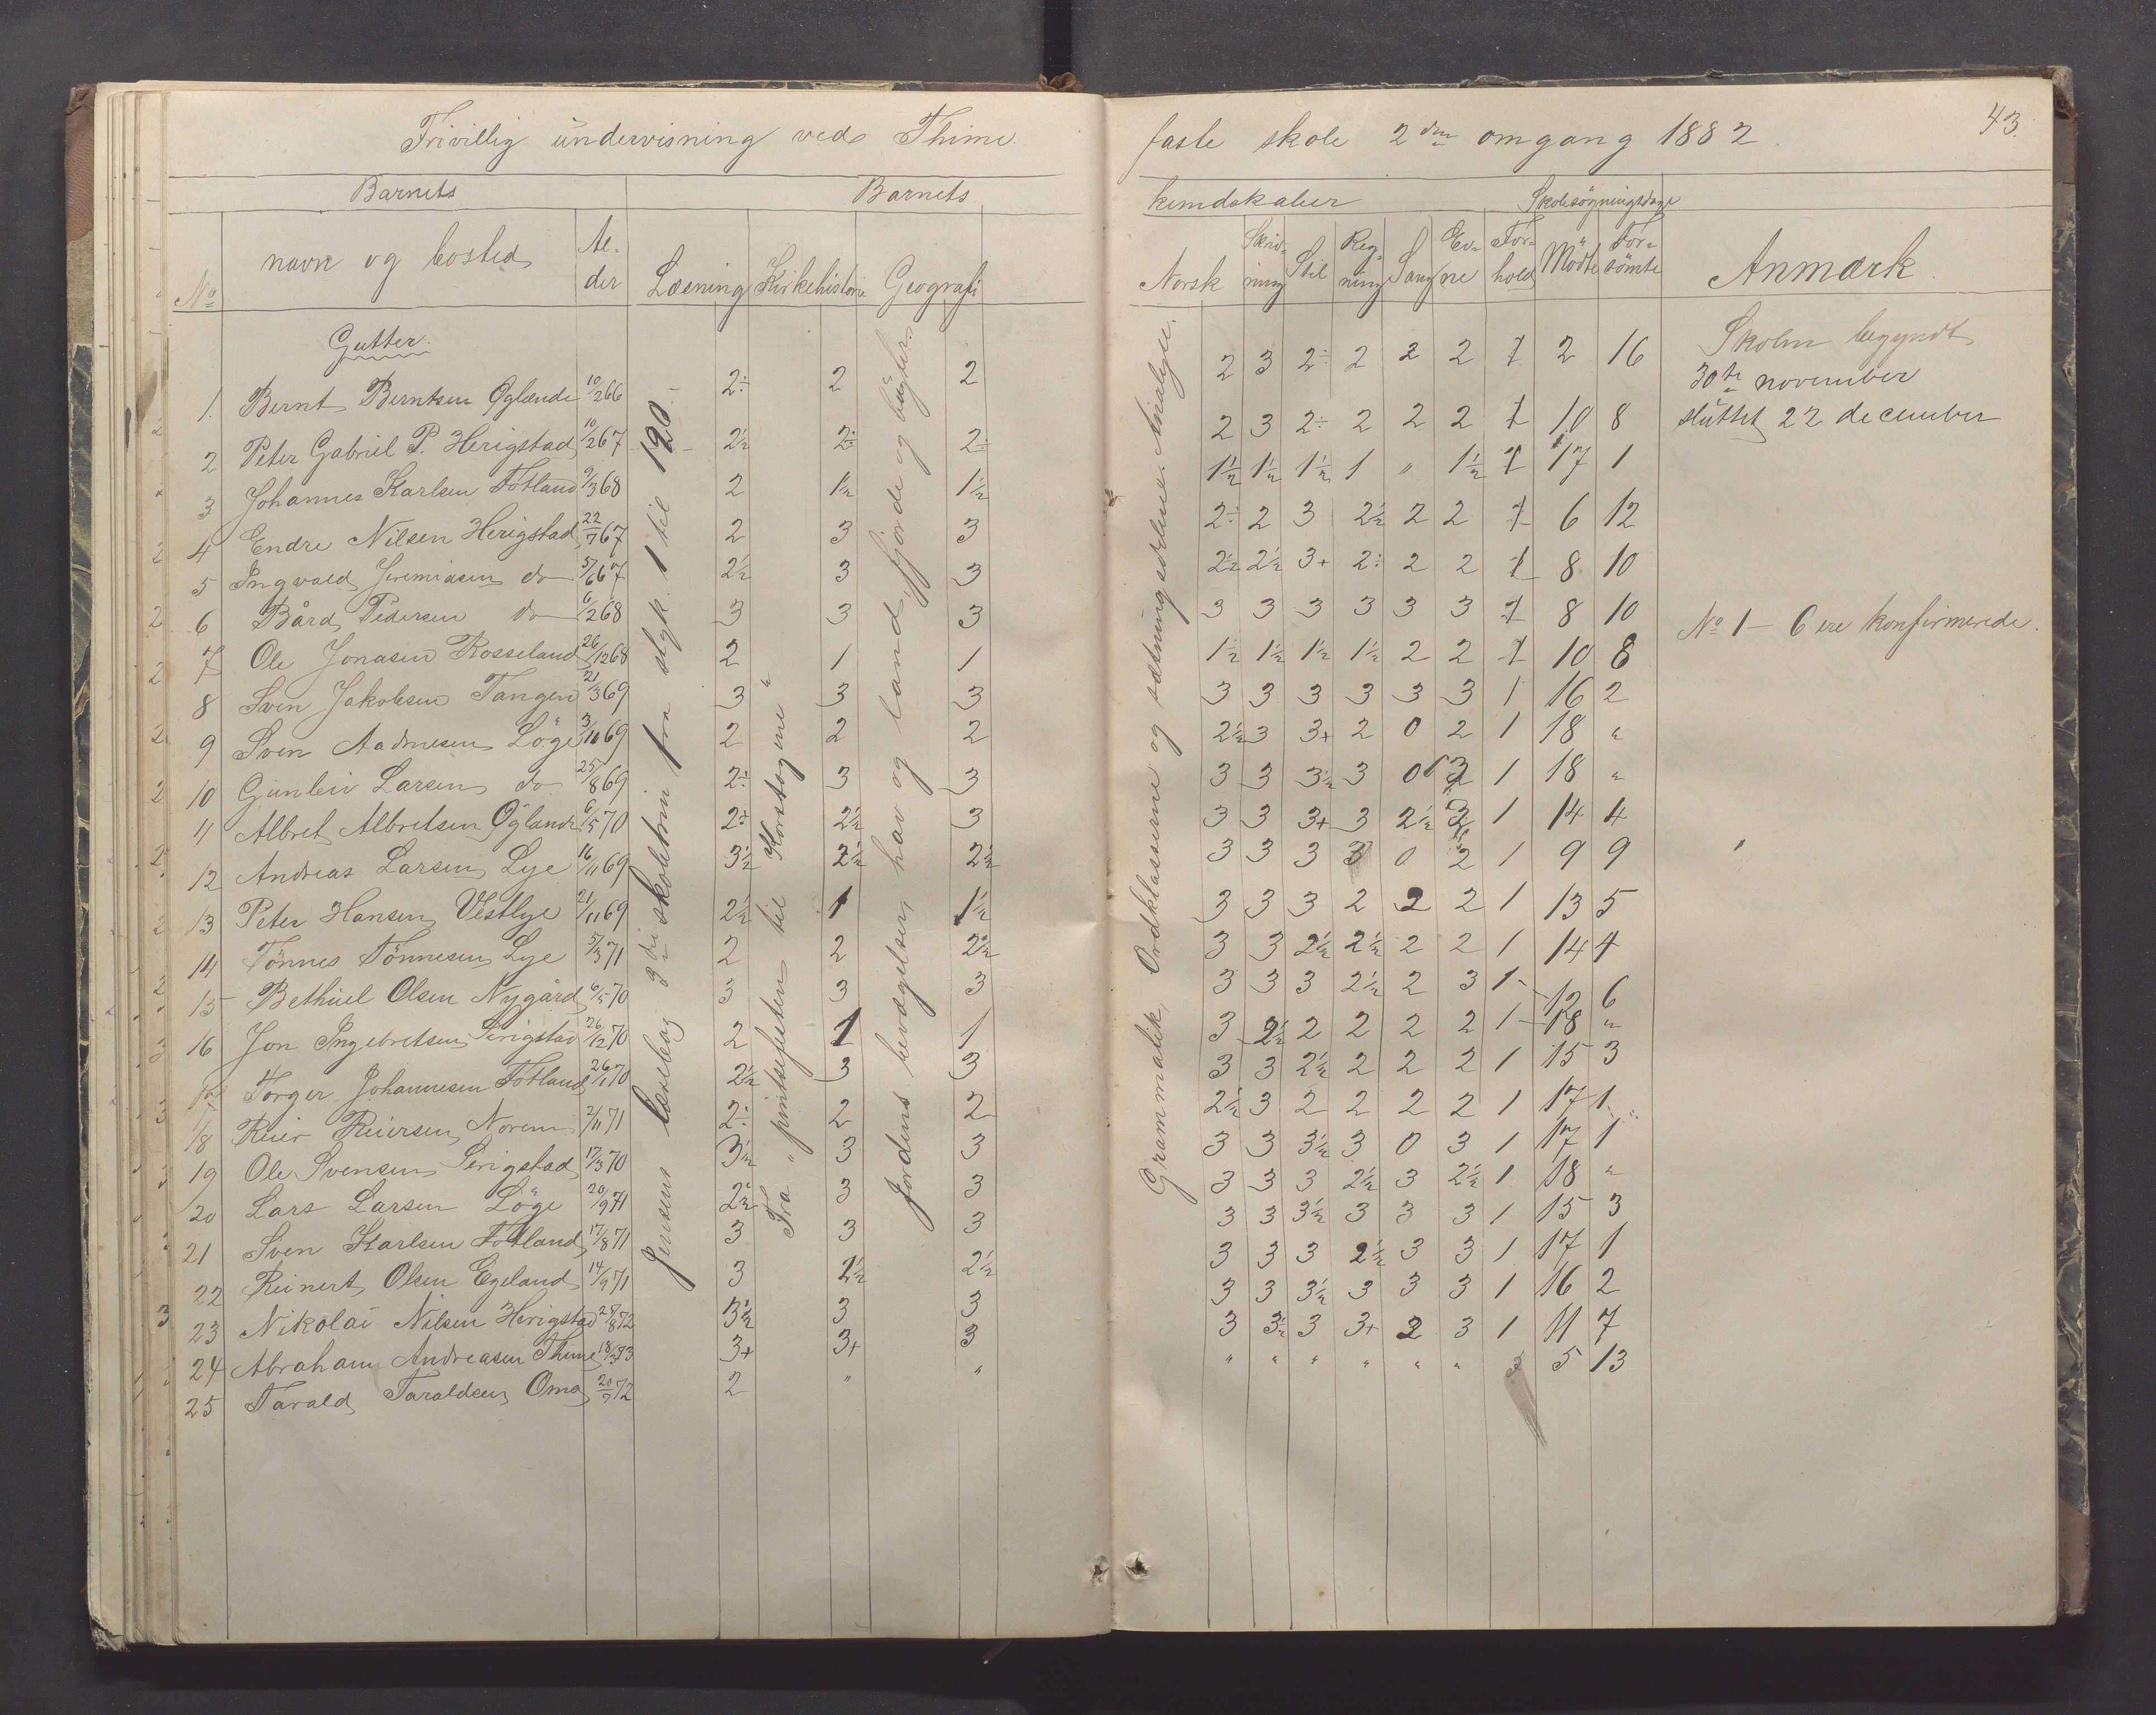 Frivillig undervisning ved Thime
Barnets
Barnets
No
navn og bosted
Al-
der
Læsning
Kirkehistorie
Geografi
Gutter.
Jensens læsebog 2die skoletrin fra styk. 1 til 120.
Fra " pintsefesten til Korstogene "
Jordens bevægelser, hav og land, fjorde og bugter.
1. Bernt Berntsen Øglænde 10/2 66 2÷ 2 2
2 Peter Gabriel P. Herigstad 10/2 67 2½ 2÷ 2÷
3 Johannes Karlsen Fotland 9/3 68 2 1½ 1½
4 Endre Nilsen Herigstad 22/7 67 2 3 3
5 Ingvald Jeremiasen do 5/6 67 2½ 3 3
6 Bård Pedersen do 6/2 68 3 3 3
7 Ole Jonasen Rosseland 26/12 68 2 1 1
8 Sven Jakobsen Tangen 21/3 69 3 3 3
9 Sven Aadnesen Löge 3/10 69 2 2 2
10 Gunleiv Larsen do 25/8 69 2÷ 3 3
11 Albret Albretsen Øglænde 6/5 70 2÷ 2½ 3
12 Andreas Larsen Lye 16/11 69 3½ 2½ 2½
13 Peter Hansen Vestlye 21/11 69 2½ 1 1½
14 Tönnes Tönnesen Lye 5/3 71 2 2 2½
15 Bethuel Olsen Nygård 6/5 70 3 3 3
16 Jon Ingebretsen Serigstad 26/12 70 2 1 1
17 Torger Johannesen Fotland 26/1 70 2½ 3 3
18 Reier Reiersen Norem 2/11 71 2÷ 2 2
19 Ole Svensen Serigstad 17/3 70 3½ 3 3
20 Lars Larsen Löge 20/9 71 2½ 3 3
21 Sven Karlsen Fotland 17/8 71 3 3 3
22 Reinert Olsen Egeland 14/9 71 3 2½ 2½
23 Nikolai Nilsen Herigstad 27/8 72 3½ 3 3
24 Abraham Andreasen Thime 18/3 73 3+ 3+ 3
25 Tarald Taraldsen Omo 20/7 72 2 " "
faste skole 2den omgang 1882
43
kundskaber
Skolesögningsdage
Norsk
Skriv-
ning
Stil
Reg-
ning
Sang
Ev-
ne
For-
hold
Mödte
For-
sömte
Anmærk
Grammatik, Ordklasserne og sætningsdelenes Analyse.
2 3 2÷ 2 2 2 1 2 16
2 3 2÷ 2 2 2 1 10 8
1½ 1½ 1½ 1 " 1½ 1 17 1
2÷ 2 3 2½ 2 2 1 6 12
2½ 2½ 3+ 2÷ 2 2 1 8 10
3 3 3 3 3 3 1 8 10
1½ 1½ 1½ 1½ 2 2 1 10 8
3 3 3 3 3 3 1 16 2
2½ 3 3+ 2 0 2 1 18 "
3 3 3½ 3 0 3 1 18 "
3 3 3+ 3 2½ 3 1 14 4
3 3 3 3 0 2 1 9 9
3 3 3 2 2 2 1 13 5
3 3 2½ 2½ 2 2 1 14 4
3 3 3 2½ 2 3 1 12 6
3 2½ 2 2 2 2 1 18 "
3 3 2½ 2 2 2 1 15 3
2½ 3 2 2 2 2 1 17 1
3 3 3½ 3 0 3 1 17 1
3 3 3 2½ 3 2½ 1 18 "
3 3 3½ 3 3 3 1 15 3
3 3 3 2½ 3 3 1 17 1
3 3 3½ 3 3 3 1 16 2
3 3½ 3 3+ 2 3 1 11 7
" " " " " " 5 13
Skolen begyndt
30te november
sluttet 22 december
No 1 – 6 ere konfirmerede.